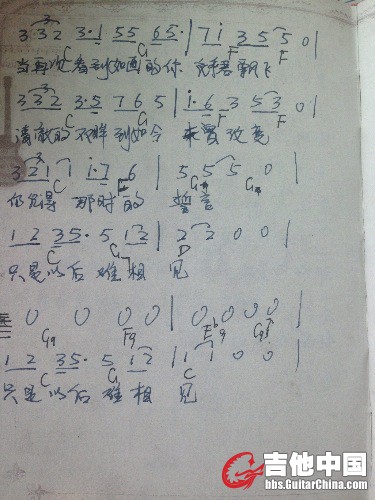 3 3 2 3·1 5 5 6 5· | 7 i 3 5 5 0 |
C G F F
当再次看到如画的你
3 3 2 3·5 7 6 5 | i·6 3 5 3 0 |
C G F F
清澈的 到如今 未曾改变
3 2 1 1 i·7 6 | 5 5 5 0 |
C
仍记得 那时的 誓言
1 2 3 5· 5 1 2 | 2 2 0 0 |
C G D
只是以后 难相 见
0 0 0 0 | 0 0 0 0 |
1 2 3 5· 5 1 2 | 1 1 0 0 |
C G C
只是以后 难相 见
吉他中国
bbs.GuitarChina.com